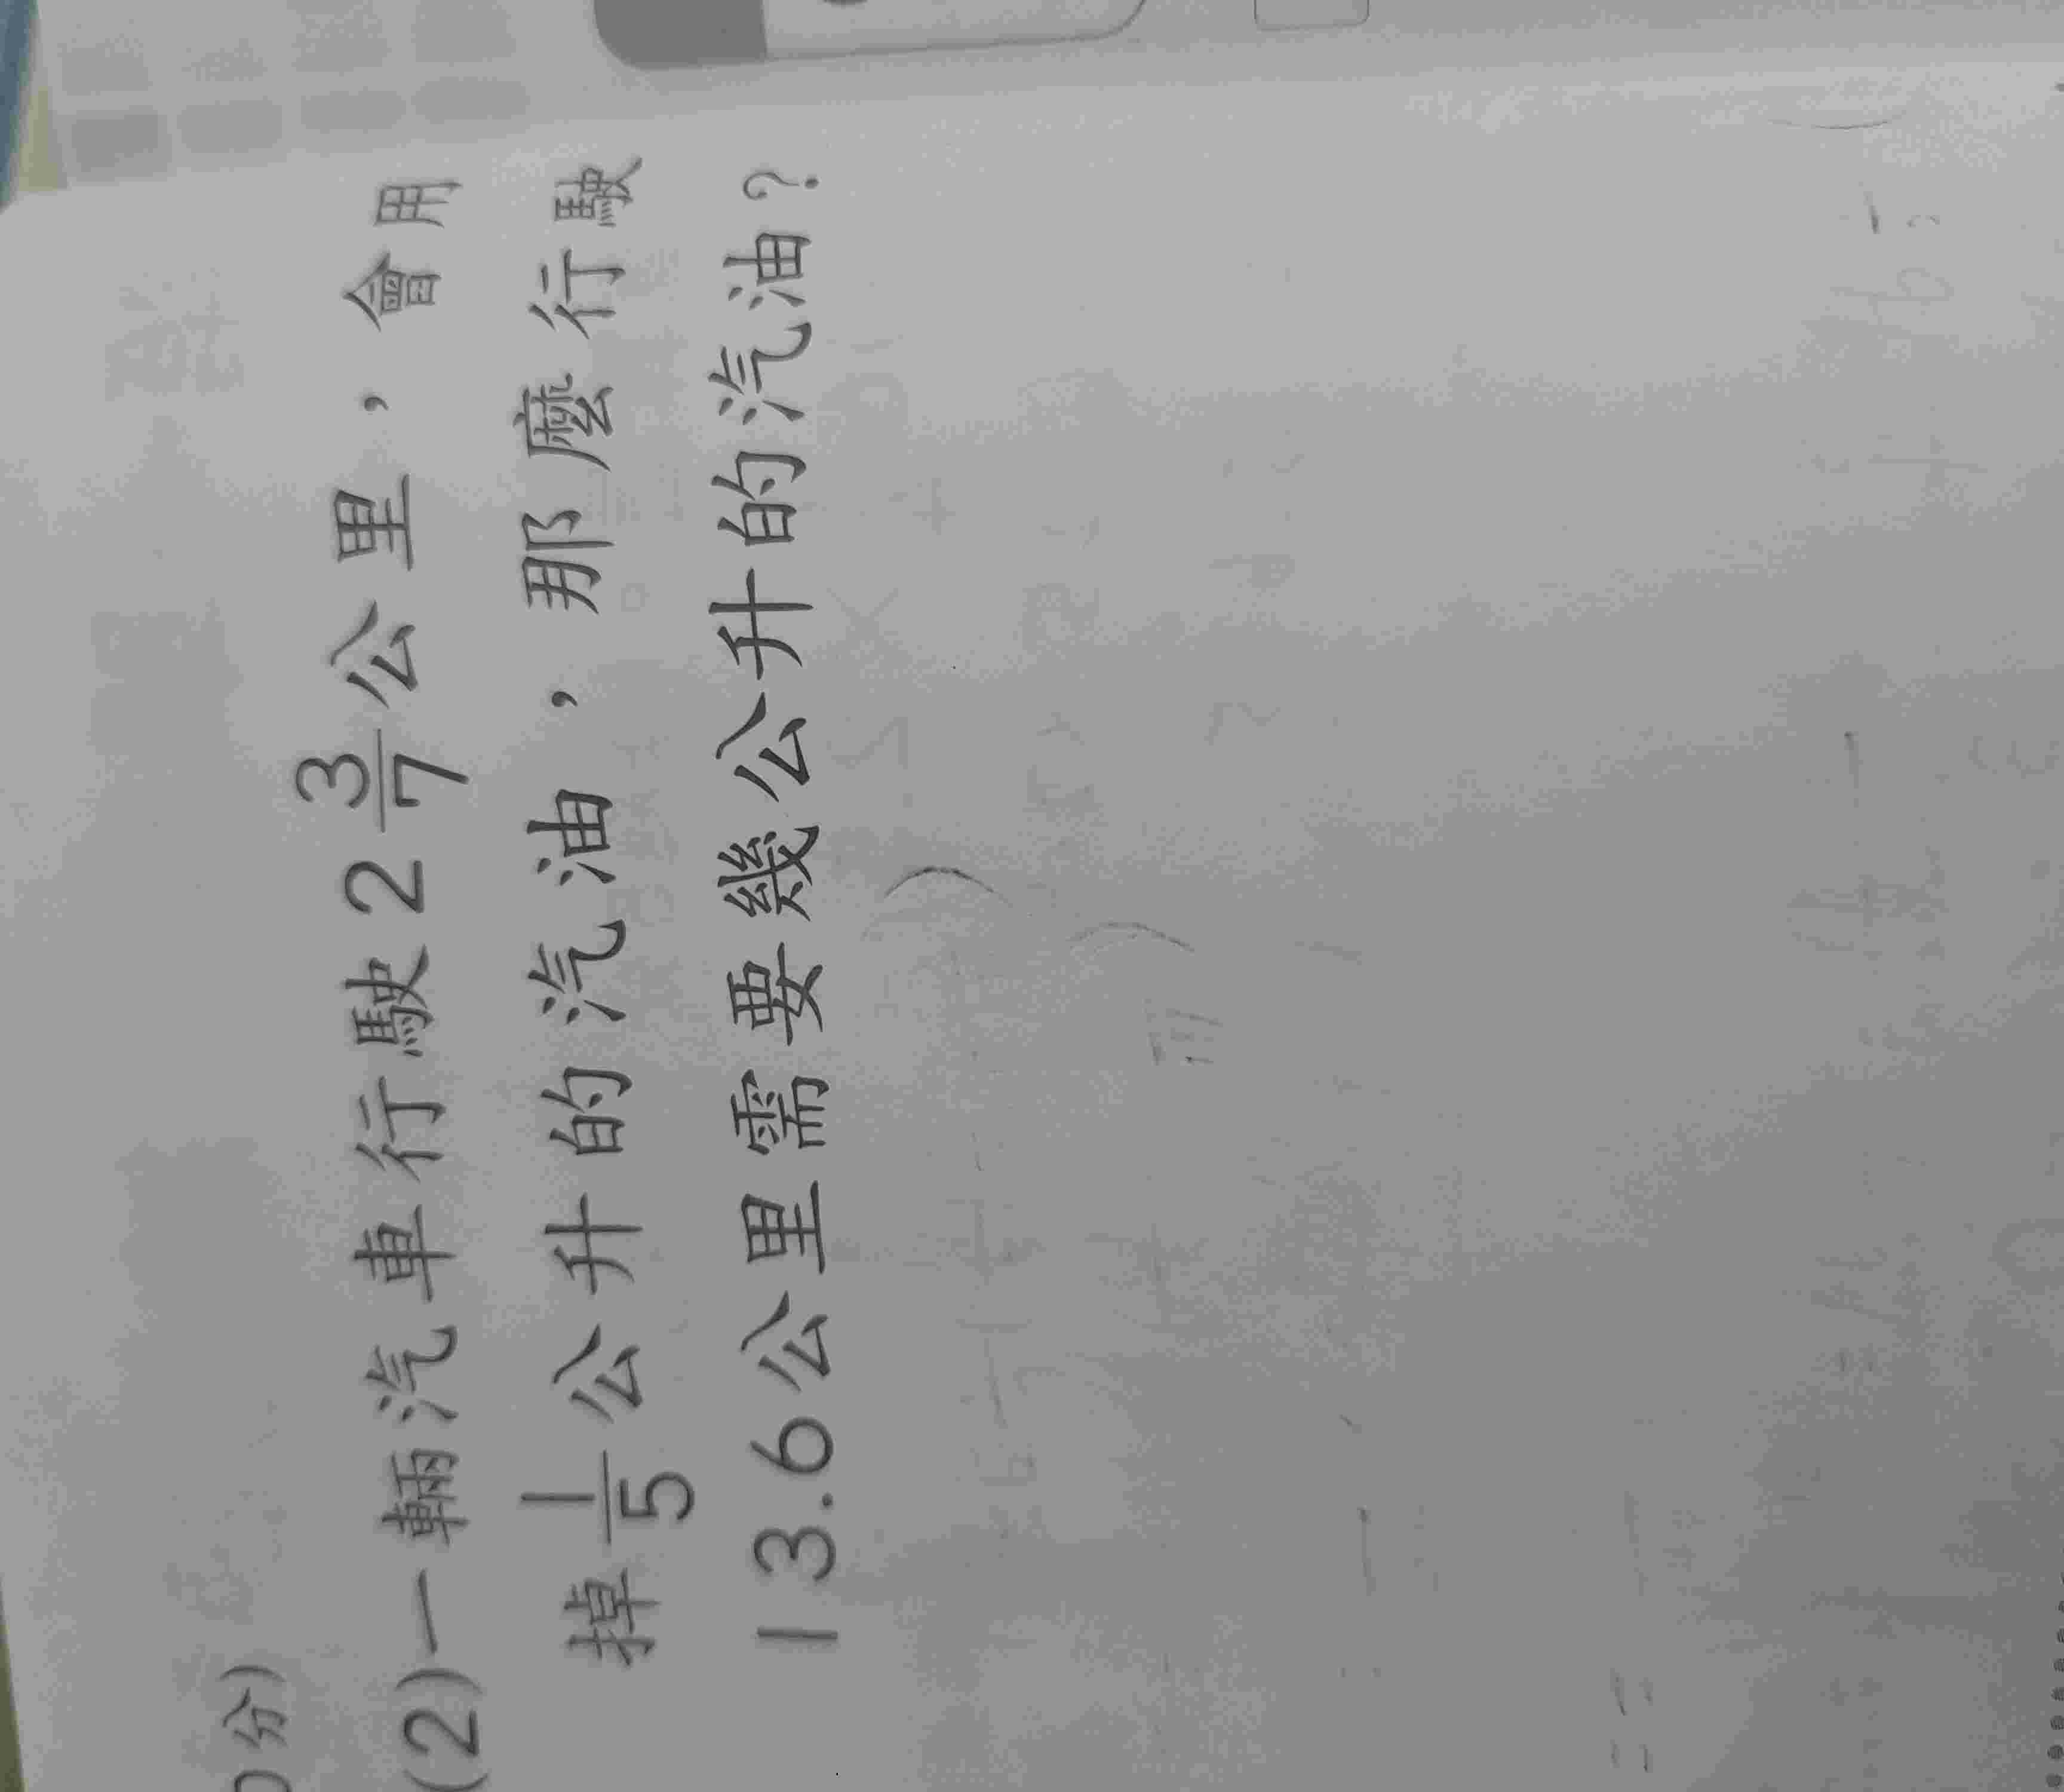 分)
(2)一輛汽車行駛2 3/7公里，會用
掉1/5公升的汽油，那麼行駛
13.6公里需要幾公升的汽油？